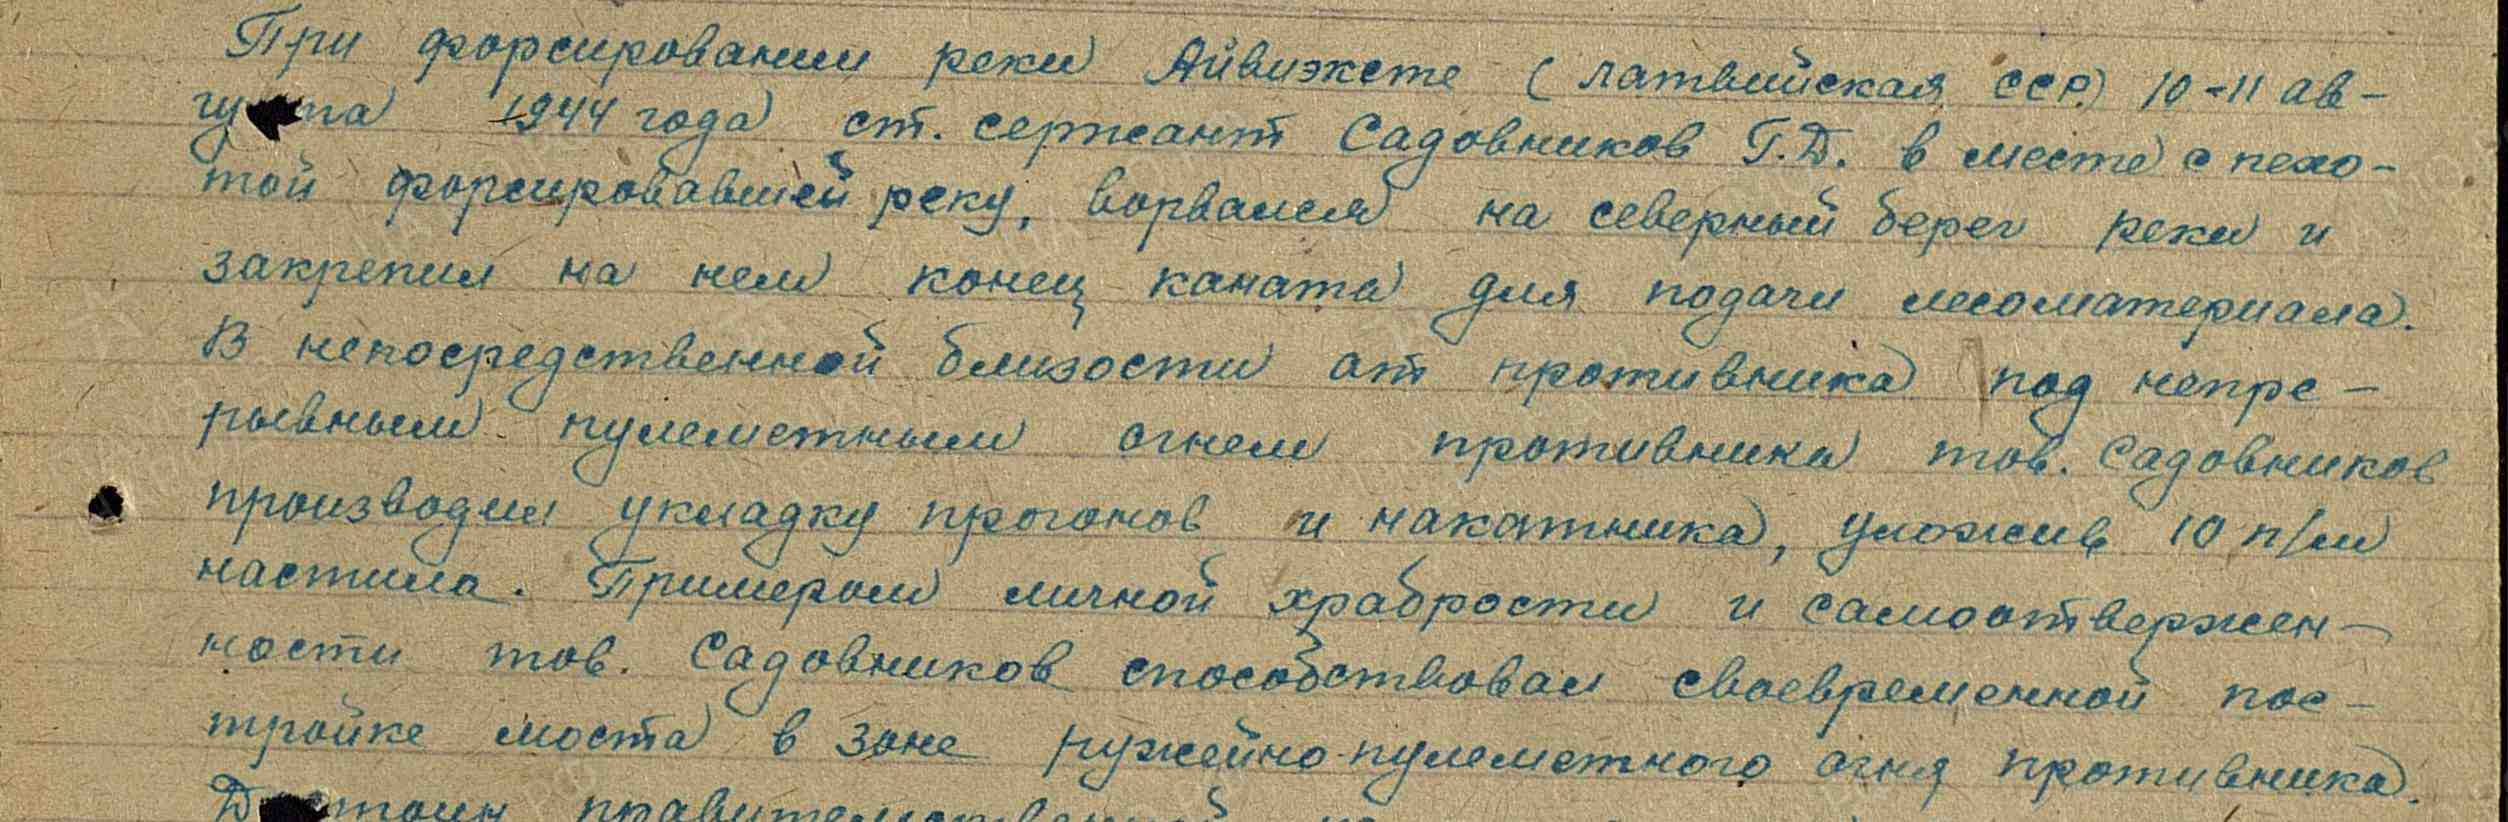 При форсировании реки Айвиэксте (Латвийская ССР) 10-11 ав-
густа 1944 года ст. сержант Садовников Г.Д. в месте с пехо-
той форсировавшей реку, ворвался на северный берег реки и
закрепил на нем конец каната для подачи лесоматериала.
В непосредственной близости от противника под непре-
рывным пулеметным огнем противника тов. Садовников
производил укладку прогонов и накатника, уложив 10 п/м
настила. Примером личной храбрости и самоотвержен-
ности тов. Садовников способствовал своевременной пос-
тройке моста в зоне ружейно-пулеметного огня противника.
Достоин правительственной